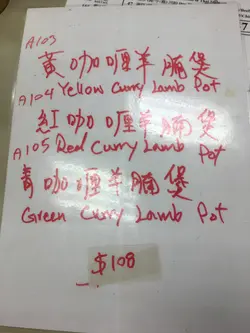 A103
黃咖喱羊腩煲
A104 Yellow Curry Lamb Pot
紅咖喱羊腩煲
A105 Red Curry Lamb Pot
青咖喱羊腩煲
Green Curry Lamb Pot
$108